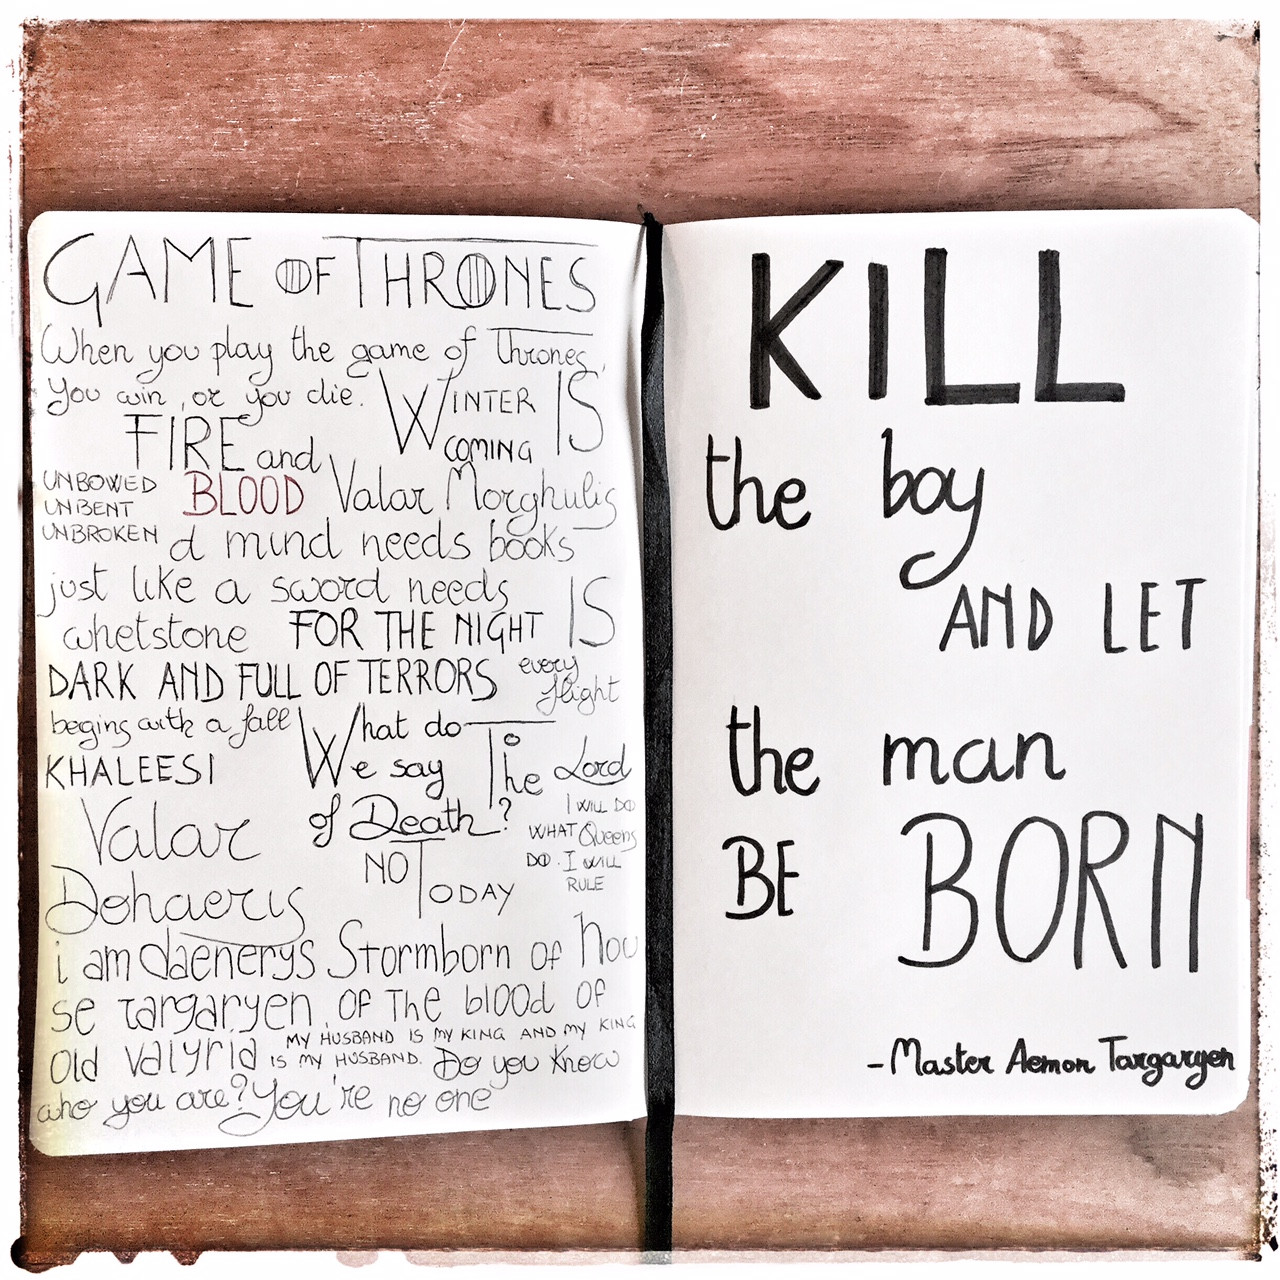 GAME OF THRONES
When you play the game of Thrones,
you win, or you die. WINTER IS
COMING
FIRE and
BLOOD
UNBOWED
UNBENT
UNBROKEN
Valar Morghulis
A mind needs books
just like a sword needs
whetstone FOR THE NIGHT IS
DARK AND FULL OF TERRORS every
flight
begins with a fall
KHALEESI
What do
We say To The Lord
of Death?
NOT TODAY
I WILL DO
WHAT Queens
DO. I WILL
RULE
Valar
Dohaeris
i am daenerys Stormborn of hou
se targaryen, of The blood of
old valyria
MY HUSBAND IS MY KING AND MY KING
IS MY HUSBAND. Do you know
who you are? You're no one
KILL
the boy
AND LET
the man
BE BORN
-Master Aemon Targaryen